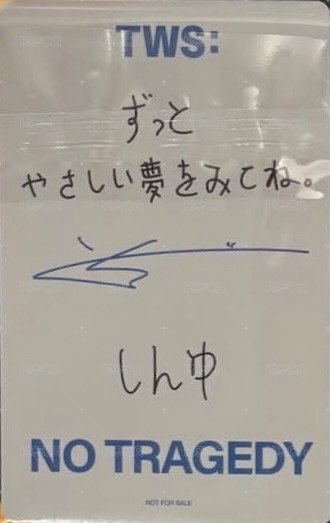 TWS:
ずっと
やさしい夢をみてね。
しんゆ
NO TRAGEDY
NOT FOR SALE